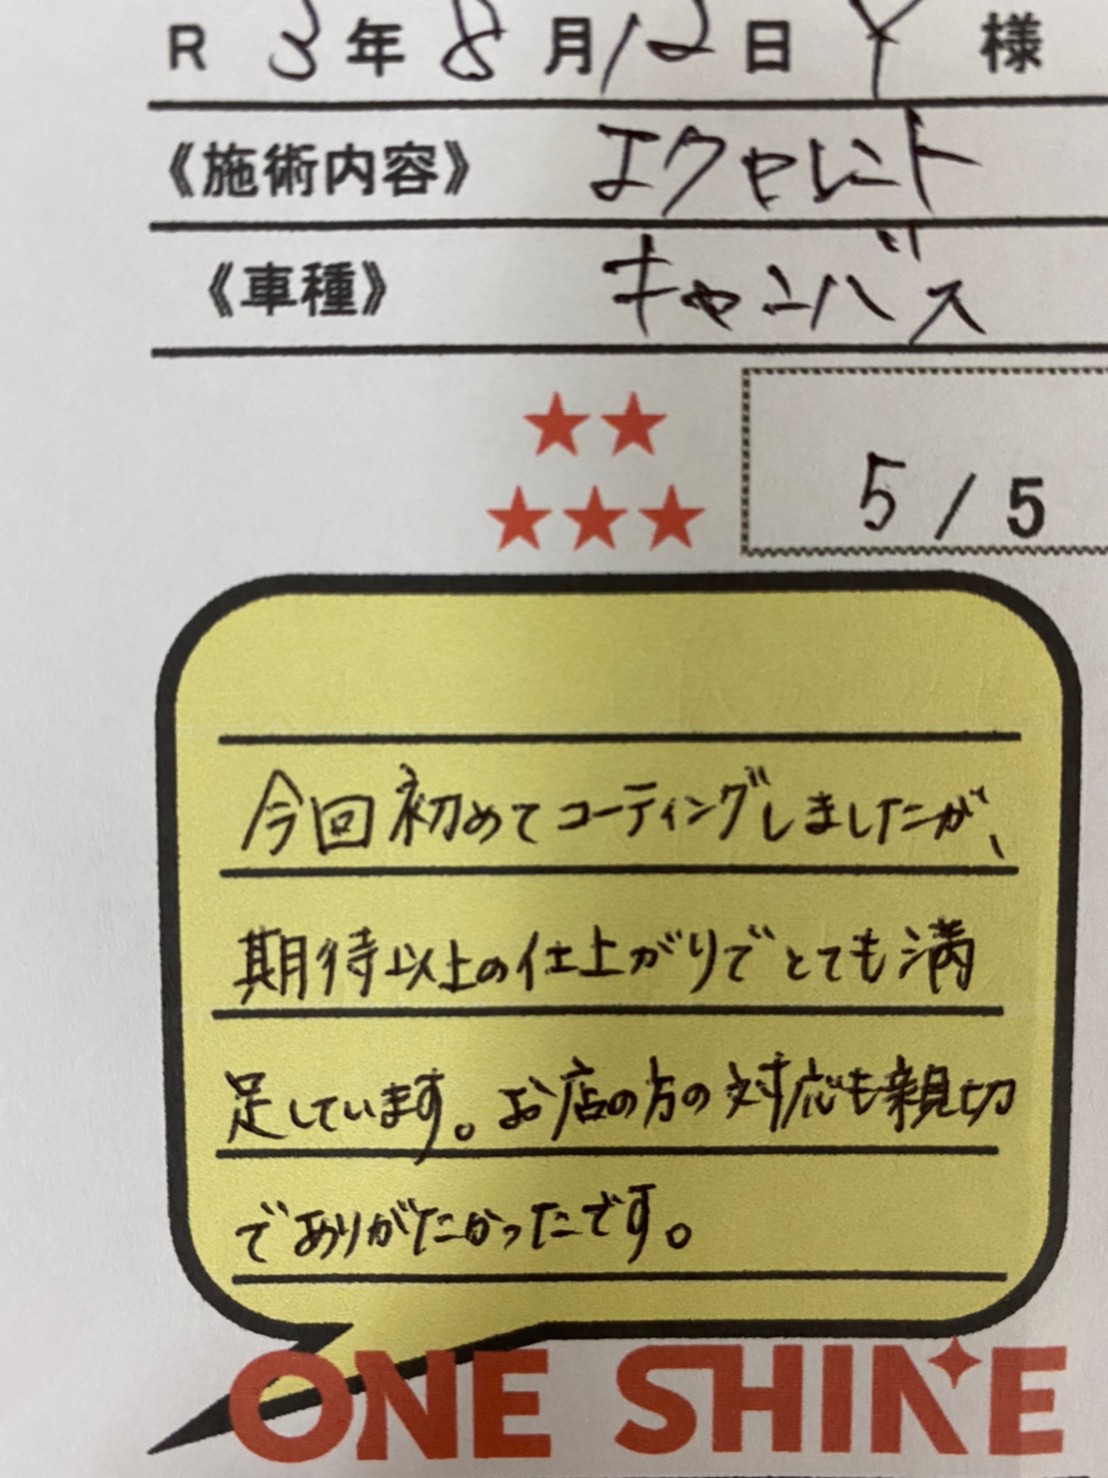 R 3年8月12日 Y 様
《施術内容》 エクセレント
《車種》 キャンバス
5/5
今回初めてコーティングしましたが、
期待以上の仕上がりでとても満
足しています。お店の方の対応も親切
でありがたかったです。
ONE SHINE